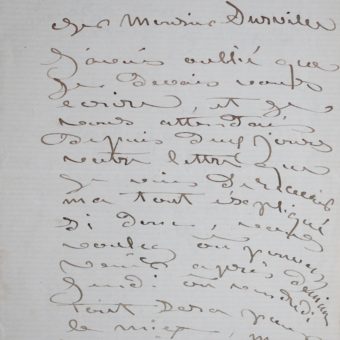 cher Monsieur Durville
J'avais oublié que
je devais vous
écrire, et je
vous attendais
depuis deux jours
votre lettre que
je viens de recevoir
m'a tout expliqué
Si donc, vous
voulez ou pouvez
venir après demain
jeudi ou vendredi
tout sera pour
le mieux,